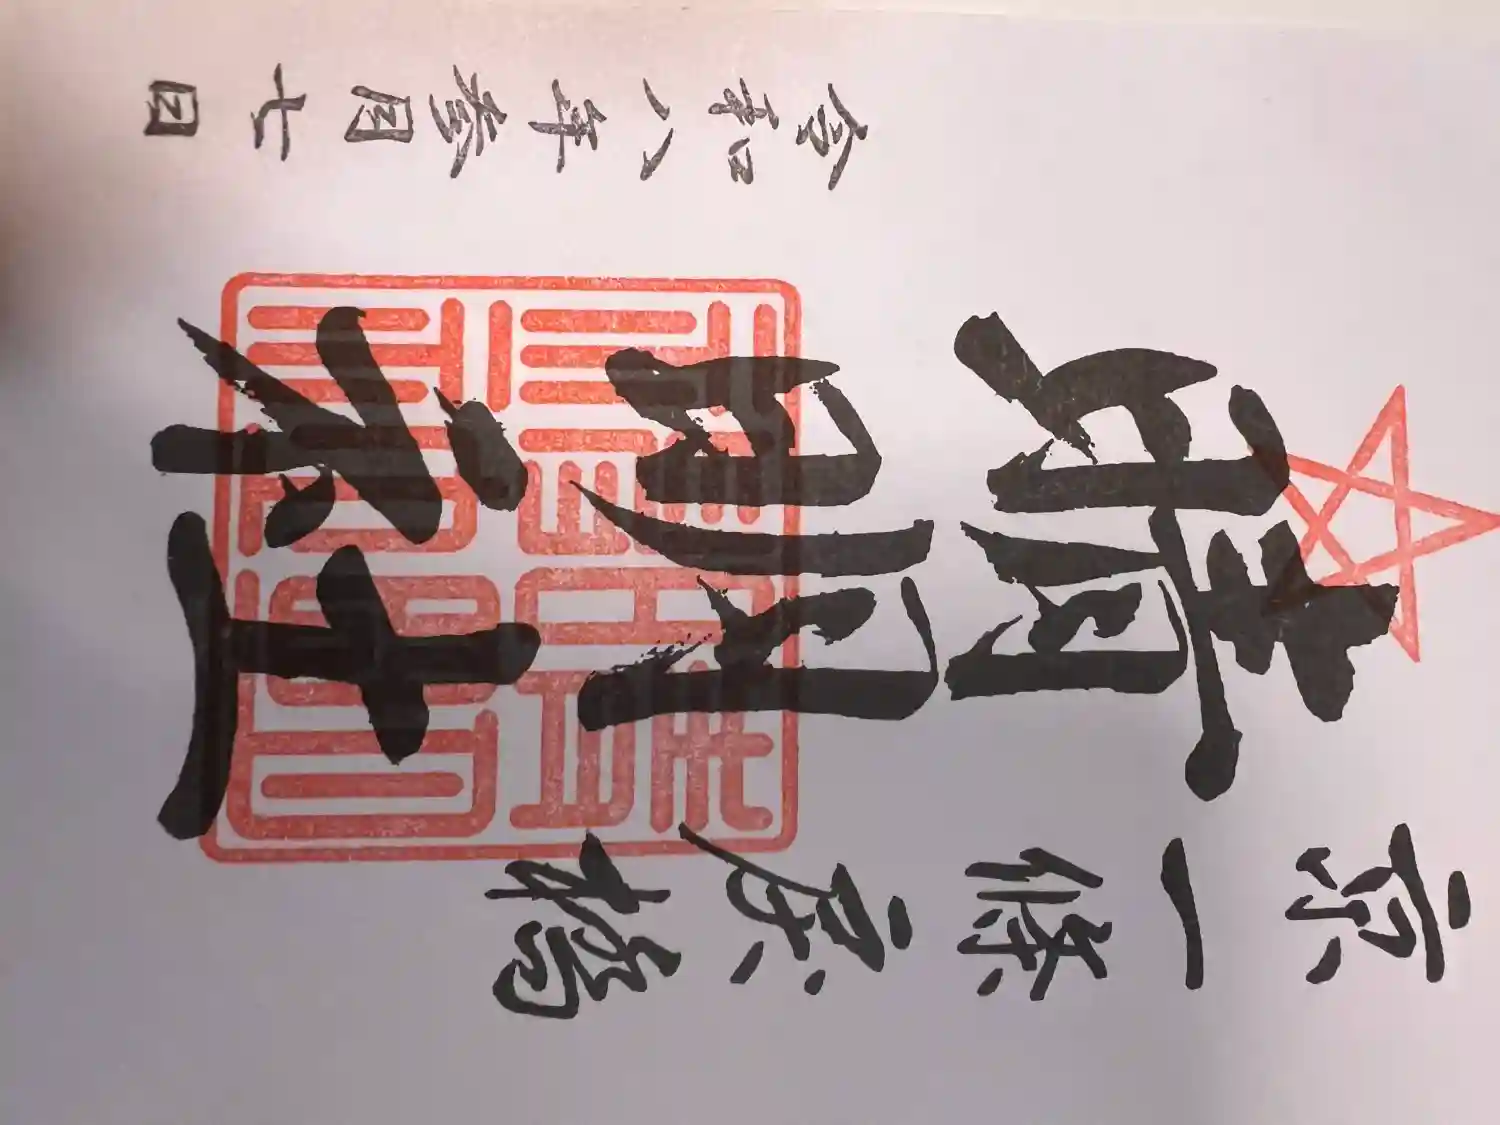 京一條戻橋
晴明神社
令和八年参月七日